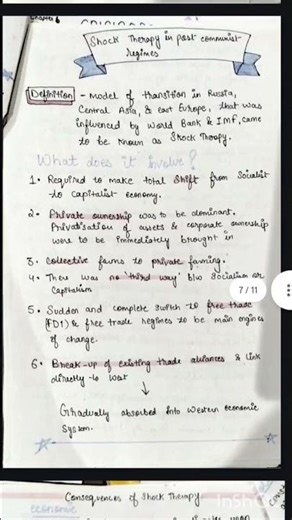 Chapter 6
Shock Therapy in post communist
regimes
Definition - Model of transition in Russia,
Central Asia, & east Europe, that was
influenced by World Bank & IMF, came
to be known as Shock Thropy.
What does it involve?
1. Required to make total shift from Socialist
to capitalist economy.
2. Private ownership was to be dominant.
Privatisation of assets & corporate ownership
were to be immediately brought in
3. Collective farms to private farming.
4. There was no 'third way' b/w Socialism or
Capitalism
7 / 11
5. Sudden and complete switch to free trade
(FDI) & free trade regimes to be main engines
of change.
6. Break-up of existing trade alliances & link
directly to west
↓
Gradually absorbed into Western economic
System.
Consequences of Shock Therapy.
economic
InShot